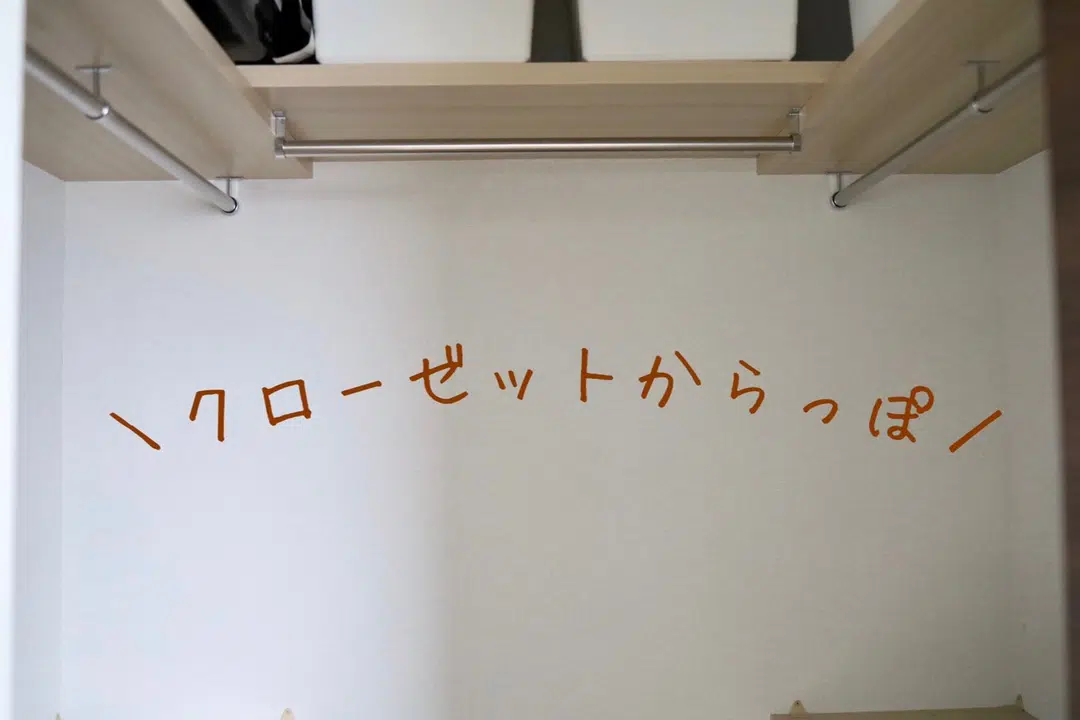 \クローゼットからっぽ/